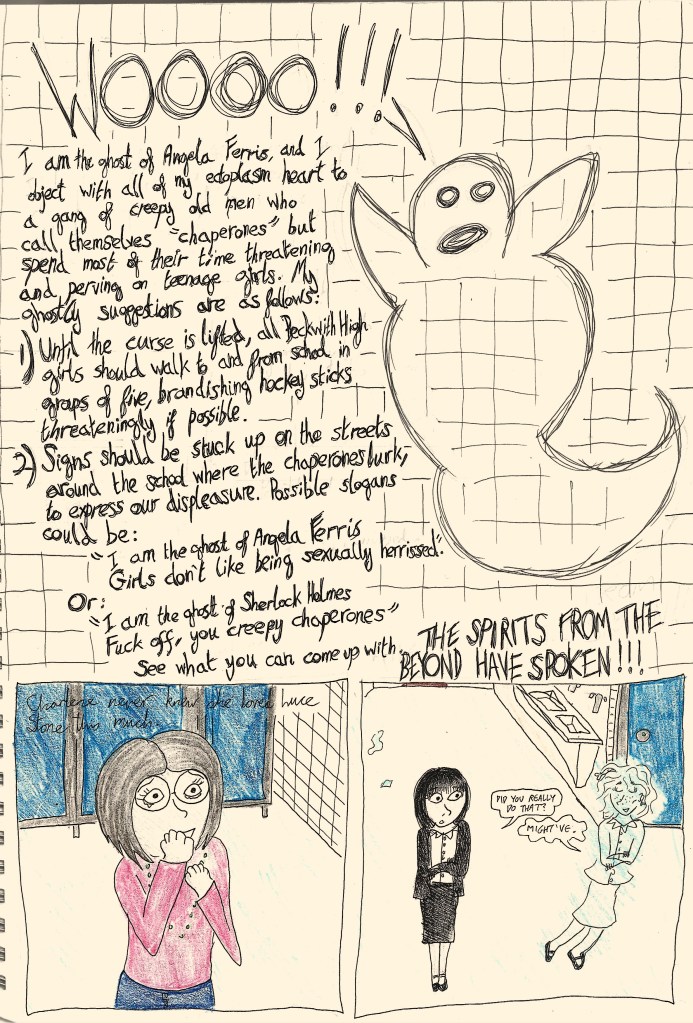 WOOOO!!!
I am the ghost of Angela Ferris, and I
object with all of my ectoplasm heart to
a gang of creepy old men who
call themselves "chaperones" but
spend most of their time threatening
and perving on teenage girls. My
ghostly suggestions are as follows:
1) Until the curse is lifted, all Beckwith High
girls should walk to and from school in
groups of five, brandishing hockey sticks
threateningly if possible.
2) Signs should be stuck up on the streets
around the school where the chaperones lurk,
to express our displeasure. Possible slogans
could be:
"I am the ghost of Angela Ferris
Girls don't like being sexually herrissed".
Or:
"I am the ghost of Sherlock Holmes
Fuck off, you creepy chaperones"
See what you can come up with.
THE SPIRITS FROM THE
BEYOND HAVE SPOKEN!!!
Charlene never knew she loved
Stone this much.
DID YOU REALLY
DO THAT?
MIGHT'VE.